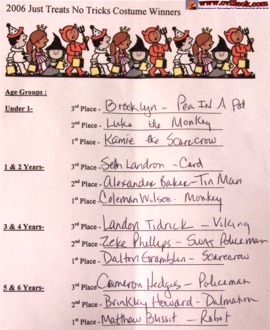 www.cvilleok.com
2006 Just Treats No Tricks Costume Winners
Age Groups:
Under 1- 3rd Place - Brooklyn - Pea IN A Pod
2nd Place - Luke the Monkey
1st Place - Kamie the Scarecrow
1 & 2 Years- 3rd Place - Seth Landron - Card
2nd Place - Alexander Baker - Tin Man
1st Place - Coleman Wilson - Monkey
3 & 4 Years- 3rd Place - Landon Tidrick - Viking
2nd Place - Zeke Phillips - Swat Policeman
1st Place - Dalton Gramblin - Scarecrow
5 & 6 Years- 3rd Place - Cameron Hedges - Policeman
2nd Place - Brinkley Howard - Dalmation
1st Place - Matthew Blissit - Robot